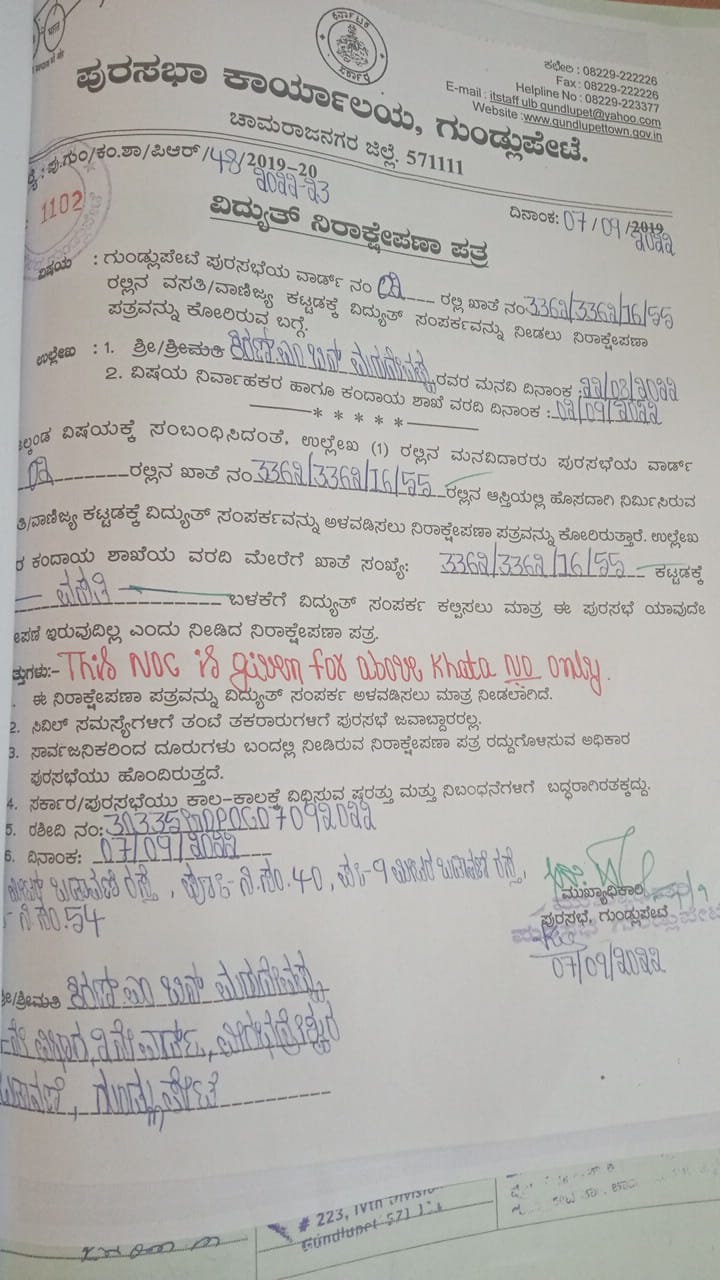 ಕರ್ನಾಟಕ ಸರ್ಕಾರ
ಕಛೇರಿ : 08229-222226
Fax : 08229-222226
Helpline No : 08229-223377
E-mail : itstaff_ulb_gundlupet@yahoo.com
Website :www.gundlupettown.gov.in
ಪುರಸಭಾ ಕಾರ್ಯಾಲಯ, ಗುಂಡ್ಲುಪೇಟೆ.
ಚಾಮರಾಜನಗರ ಜಿಲ್ಲೆ. 571111
ಪು.ಗುಂ/ಕಂ.ಶಾ/ಪಿಆರ್/48/2019-20
೨೦೨೨-೨೩
1102
ದಿನಾಂಕ: 07/09/2019
೨೦೨೨
ವಿದ್ಯುತ್ ನಿರಾಕ್ಷೇಪಣಾ ಪತ್ರ
ವಿಷಯ : ಗುಂಡ್ಲುಪೇಟೆ ಪುರಸಭೆಯ ವಾರ್ಡ್ ನಂ ರಲ್ಲಿ ಖಾತೆ ನಂ 336೨/336೨/16/55
ರಲ್ಲಿನ ವಸತಿ/ವಾಣಿಜ್ಯ ಕಟ್ಟಡಕ್ಕೆ ವಿದ್ಯುತ್ ಸಂಪರ್ಕವನ್ನು ನೀಡಲು ನಿರಾಕ್ಷೇಪಣಾ
ಪತ್ರವನ್ನು ಕೋರಿರುವ ಬಗ್ಗೆ.
ಉಲ್ಲೇಖ : 1. ಶ್ರೀ/ಶ್ರೀಮತಿ ಕಿರಣ್ ಎಂ ಬಿನ್ ರವರ ಮನವಿ ದಿನಾಂಕ :೨೨/03/೨೦೨೨
2. ವಿಷಯ ನಿರ್ವಾಹಕರ ಹಾಗೂ ಕಂದಾಯ ಶಾಖೆ ವರದಿ ದಿನಾಂಕ :0೨/09/೨೦೨೨
* * * * *
ಲ್ಕಂಡ ವಿಷಯಕ್ಕೆ ಸಂಬಂಧಿಸಿದಂತೆ, ಉಲ್ಲೇಖ (1) ರಲ್ಲಿನ ಮನವಿದಾರರು ಪುರಸಭೆಯ ವಾರ್ಡ್
ರಲ್ಲಿನ ಖಾತೆ ನಂ 336೨/336೨/16/55 ರಲ್ಲಿನ ಆಸ್ತಿಯಲ್ಲಿ ಹೊಸದಾಗಿ ನಿರ್ಮಿಸಿರುವ
ತಿ/ವಾಣಿಜ್ಯ ಕಟ್ಟಡಕ್ಕೆ ವಿದ್ಯುತ್ ಸಂಪರ್ಕವನ್ನು ಅಳವಡಿಸಲು ನಿರಾಕ್ಷೇಪಣಾ ಪತ್ರವನ್ನು ಕೋರಿರುತ್ತಾರೆ. ಉಲ್ಲೇಖ
ರ ಕಂದಾಯ ಶಾಖೆಯ ವರದಿ ಮೇರೆಗೆ ಖಾತೆ ಸಂಖ್ಯೆ: 336೨/336೨/16/55 ಕಟ್ಟಡಕ್ಕೆ
ವಸತಿ ಬಳಕೆಗೆ ವಿದ್ಯುತ್ ಸಂಪರ್ಕ ಕಲ್ಪಿಸಲು ಮಾತ್ರ ಈ ಪುರಸಭೆ ಯಾವುದೇ
ಪಣೆ ಇರುವುದಿಲ್ಲ ಎಂದು ನೀಡಿದ ನಿರಾಕ್ಷೇಪಣಾ ಪತ್ರ.
ತ್ತುಗಳು:- This NOC is given for above Khata NO only.
. ಈ ನಿರಾಕ್ಷೇಪಣಾ ಪತ್ರವನ್ನು ವಿದ್ಯುತ್ ಸಂಪರ್ಕ ಅಳವಡಿಸಲು ಮಾತ್ರ ನೀಡಲಾಗಿದೆ.
2. ಸಿವಿಲ್ ಸಮಸ್ಯೆಗಳಿಗೆ ತಂಟೆ ತಕರಾರುಗಳಿಗೆ ಪುರಸಭೆ ಜವಾಬ್ದಾರರಲ್ಲ.
3. ಸಾರ್ವಜನಿಕರಿಂದ ದೂರುಗಳು ಬಂದಲ್ಲಿ ನೀಡಿರುವ ನಿರಾಕ್ಷೇಪಣಾ ಪತ್ರ ರದ್ದುಗೊಳಿಸುವ ಅಧಿಕಾರ
ಪುರಸಭೆಯು ಹೊಂದಿರುತ್ತದೆ.
4. ಸರ್ಕಾರ/ಪುರಸಭೆಯು ಕಾಲ-ಕಾಲಕ್ಕೆ ವಿಧಿಸುವ ಷರತ್ತು ಮತ್ತು ನಿಬಂಧನೆಗಳಿಗೆ ಬದ್ಧರಾಗಿರತಕ್ಕದ್ದು.
5. ರಶೀದಿ ನಂ:
6. ದಿನಾಂಕ: 07/09/೨೦೨೨
ಬಡಾವಣೆ ರಸ್ತೆ, ನಿ.ಸಂ.40, ಬಡಾವಣೆ ರಸ್ತೆ,
ನಿ.ಸಂ.54
ಮುಖ್ಯಾಧಿಕಾರಿ
ಪುರಸಭೆ, ಗುಂಡ್ಲುಪೇಟೆ
07/09/೨೦೨೨
ಶ್ರೀ/ಶ್ರೀಮತಿ ಕಿರಣ್ ಎಂ ಬಿನ್
ಬಡಾವಣೆ, ಗುಂಡ್ಲುಪೇಟೆ
# 223, IVth Division
Gundlupet 571